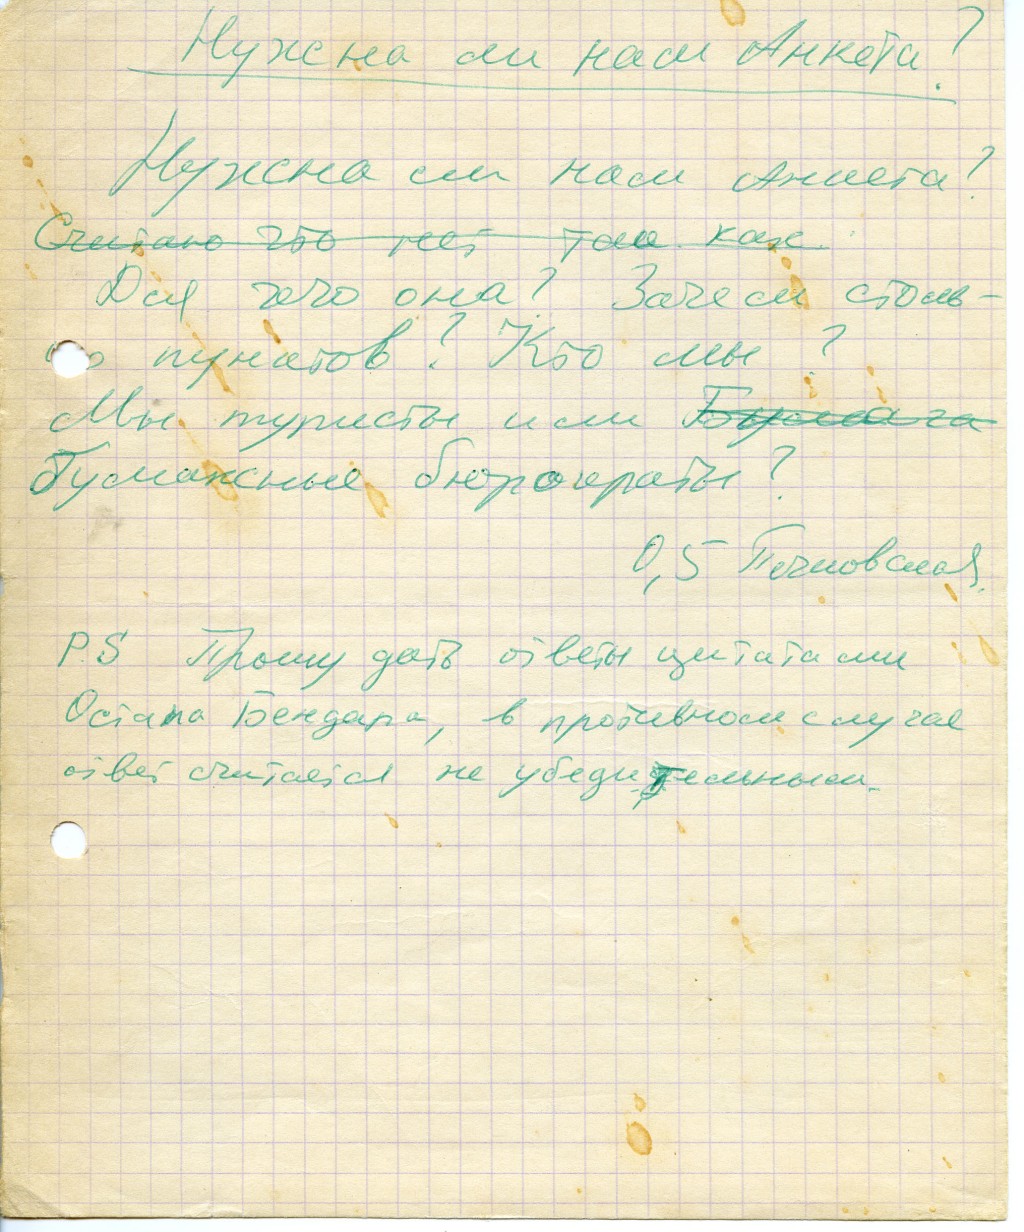 Нужна ли нам Анкета?
Нужна ли нам анкета?
Считаю что нет так как
Для чего она? Зачем столь-
ко пунктов? Кто мы?
Мы туристы или Бумага
Бумажные бюрократы?
0,5
P.S Прошу дать ответы цитатами
Остапа Бендара, в противном случае
ответ считается не убедительным.